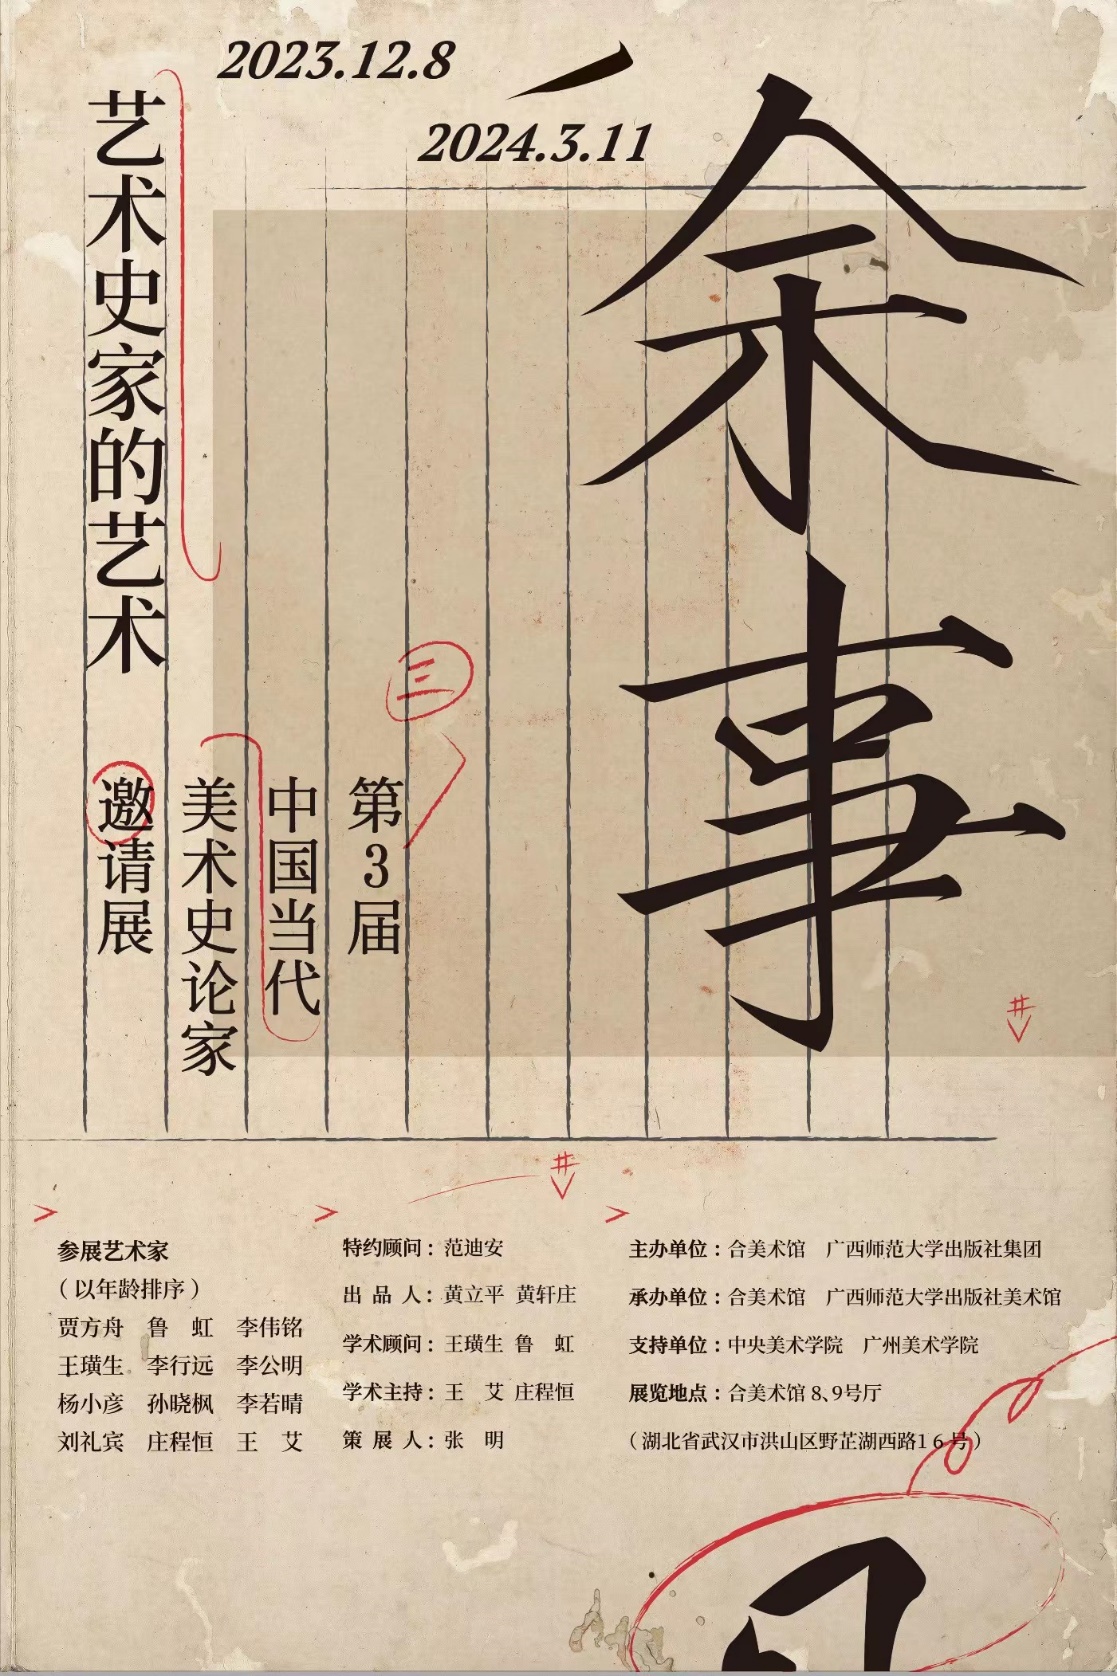 2023.12.8
2024.3.11
余事
艺术史家的艺术
三
第3届
中国当代
美术史论家
邀请展
参展艺术家
（以年龄排序）
贾方舟 鲁 虹 李伟铭
王璜生 李行远 李公明
杨小彦 孙晓枫 李若晴
刘礼宾 庄程恒 王 艾
特约顾问：范迪安
出 品 人：黄立平 黄轩庄
学术顾问：王璜生 鲁 虹
学术主持：王 艾 庄程恒
策 展 人：张 明
主办单位：合美术馆 广西师范大学出版社集团
承办单位：合美术馆 广西师范大学出版社美术馆
支持单位：中央美术学院 广州美术学院
展览地点：合美术馆 8、9号厅
（湖北省武汉市洪山区野芷湖西路16号）